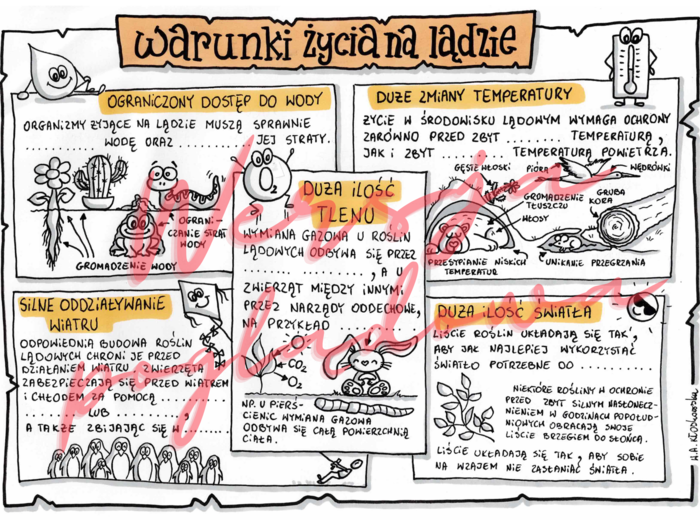 Warunki życia na lądzie
OGRANICZONY DOSTĘP DO WODY
ORGANIZMY ŻYJĄCE NA LĄDZIE MUSZĄ SPRAWNIE
.......... WODĘ ORAZ .......... JEJ STRATY.
OGRANI-
CZANIE STRAT
WODY
GROMADZENIE WODY
DUŻE ZMIANY TEMPERATURY
ŻYCIE W ŚRODOWISKU LĄDOWYM WYMAGA OCHRONY
ZARÓWNO PRZED ZBYT .......... TEMPERATURĄ,
JAK I ZBYT .......... TEMPERATURĄ POWIETRZA.
GĘSTE WŁOSKI
PIÓRA
WĘDRÓWKI
GROMADZENIE
TŁUSZCZU
GRUBA
KORA
WŁOSY
PRZESYPIANIE NISKICH
TEMPERATUR
UNIKANIE PRZEGRZANIA
O2
DUŻA ILOŚĆ
TLENU
WYMIANA GAZOWA U ROŚLIN
LĄDOWYCH ODBYWA SIĘ PRZEZ
...................., A U
ZWIERZĄT MIĘDZY INNYMI
PRZEZ NARZĄDY ODDECHOWE,
NA PRZYKŁAD ..........
CO2
O2
NP. U PIERŚ-
CIENIC WYMIANA GAZOWA
ODBYWA SIĘ CAŁĄ POWIERZCHNIĄ
CIAŁA.
SILNE ODDZIAŁYWANIE
WIATRU
ODPOWIEDNIA BUDOWA ROŚLIN
LĄDOWYCH CHRONI JE PRZED
DZIAŁANIEM WIATRU. ZWIERZĘTA
ZABEZPIECZAJĄ SIĘ PRZED WIATREM
I CHŁODEM ZA POMOCĄ ..........
.......... LUB ..........,
A TAKŻE ZBIJAJĄC SIĘ W ..........
DUŻA ILOŚĆ ŚWIATŁA
LIŚCIE ROŚLIN UKŁADAJĄ SIĘ TAK,
ABY JAK NAJLEPIEJ WYKORZYSTAĆ
ŚWIATŁO POTRZEBNE DO ..........
NIEKTÓRE ROŚLINY W OCHRONIE
PRZED ZBYT SILNYM NASŁONECZ-
NIENIEM W GODZINACH POPOŁUD-
NIOWYCH OBRACAJĄ SWOJE
LIŚCIE BRZEGIEM DO SŁOŃCA.
LIŚCIE UKŁADAJĄ SIĘ TAK, ABY SOBIE
NA WZAJEM NIE ZASŁANIAĆ ŚWIATŁA.
Wersja
poglądowa